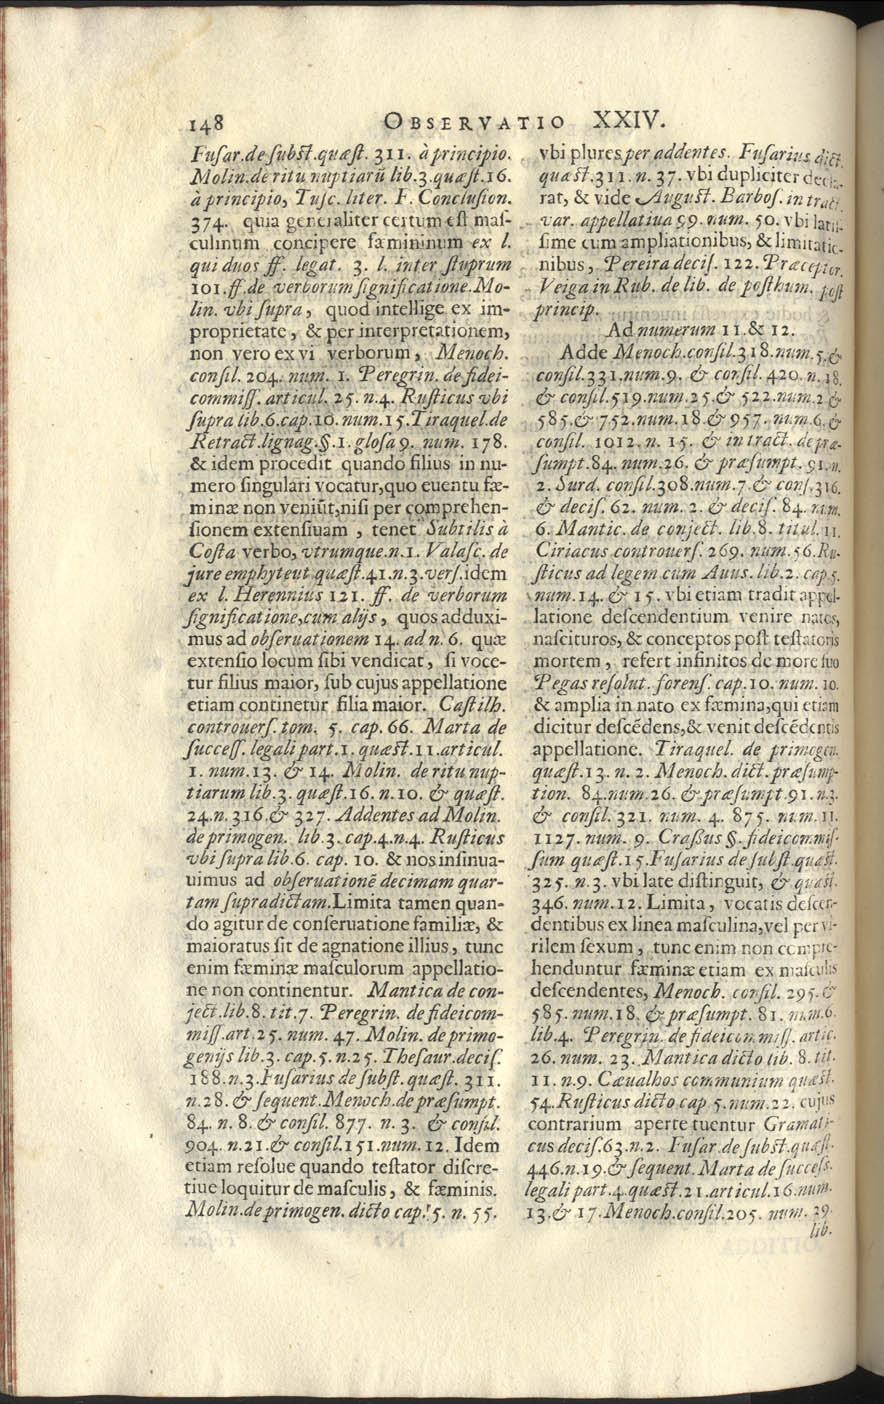 148 OBSERVATIO XXIV.
Fuſar.de ſubſt.quæſt. 311. à principio.
Molin.de ritu nuptiarū lib.3.quæſt.16.
à principio, Tuſc. liter. F. Concluſion.
374. quia generaliter certum eſt maſ-
culinum concipere fæmininum ex l.
qui duos ff. legat. 3. l. inter ſtuprum
101.ff.de verborum ſignificatione.Mo-
lin. vbi ſupra, quod intellige ex im-
proprietate, & per interpretationem,
non vero ex vi verborum, Menoch.
conſil. 204. num. 1. Peregrin. de fidei-
commiſſ. articul. 25. n.4. Ruſticus vbi
ſupra lib.6.cap.10.num.15.Tiraquel.de
Retract.lignag.§.1.gloſa 9. num. 178.
& idem procedit quando filius in nu-
mero ſingulari vocatur,quo euentu fæ-
minæ non veniūt,niſi per comprehen-
ſionem extenſiuam, tenet Subtilis à
Coſta verbo, vtrumque.n.1. Valaſc. de
jure emphyteut.quæſt.41.n.3.verſ.idem
ex l. Herennius 121. ff. de verborum
ſignificatione,cum alijs, quos adduxi-
mus ad obſeruationem 14. ad n. 6. quæ
extenſio locum ſibi vendicat, ſi voce-
tur filius maior, ſub cujus appellatione
etiam continetur filia maior. Caſtilh.
controuerſ. tom. 5. cap. 66. Marta de
ſucceſſ. legali part.1. quæſt.11.articul.
1. num.13. & 14. Molin. de ritu nup-
tiarum lib.3. quæſt.16. n.10. & quæſt.
24.n.316.& 327. Addentes ad Molin.
de primogen. lib.3.cap.4.n.4. Ruſticus
vbi ſupra lib.6. cap. 10. & nos inſinua-
uimus ad obſeruationē decimam quar-
tam ſupradictam.Limita tamen quan-
do agitur de conſeruatione familiæ, &
maioratus ſit de agnatione illius, tunc
enim fæminæ maſculorum appellatio-
ne non continentur. Mantica de con-
ject.lib.8. tit.7. Peregrin. de fideicom-
miſſ.art.25. num. 47. Molin. de primo-
genijs lib.3. cap.5. n.25. Theſaur.deciſ.
188.n.3.Fuſarius de ſubſt.quæſt. 311.
n.28. & ſequent.Menoch.de præſumpt.
84. n. 8. & conſil. 877. n. 3. & conſil.
904. n.21.& conſil.151.num. 12. Idem
etiam reſolue quando teſtator diſcre-
tiue loquitur de maſculis, & fæminis.
Molin.de primogen. dicto cap. 5. n. 55.
vbi plures per addentes. Fuſarius dict.
quæſt.311.n. 37. vbi dupliciter decla-
rat, & vide Auguſt. Barboſ. in tract.
var. appellatiua 99. num. 50. vbi latiſ-
ſime cum ampliationibus, & limitatio-
nibus, Pereira deciſ. 122. Præceptor.
Veiga in Rub. de lib. de poſthum. poſt
princip.
Ad numerum 11. & 12.
Adde Menoch.conſil.318.num.5.&
conſil.331.num.9. & conſil.420. n.18.
& conſil.519.num.25.& 522.num.2.&
585.& 752.num.18.& 957. num.6.&
conſil. 1012. n. 15. & in tract. de præ-
ſumpt.84. num.26. & præſumpt. 91.n.
2. Surd. conſil.308.num.7.& conſ.316.
& deciſ. 62. num. 2. & deciſ. 84. num.
6. Mantic. de conject. lib.8. titul. 11.
Ciriacus controuerſ. 269. num.56.Ru-
ſticus ad legem cum Auus. lib.2. cap.5.
num.14. & 15. vbi etiam tradit appel-
latione deſcendentium venire natos,
naſcituros, & conceptos poſt teſtatoris
mortem, refert infinitos de more ſuo
Pegas reſolut. forenſ. cap.10. num. 10.
& amplia in nato ex fæmina,qui etiam
dicitur deſcēdens,& venit deſcēdentis
appellatione. Tiraquel. de primogen.
quæſt.13. n. 2. Menoch. dict. præſump-
tion. 84.num.26. & præſumpt.91.n.3.
& conſil. 321. num. 4. 875. num. 11.
1127. num. 9. Craſſus §. fideicommiſ-
ſum quæſt.15.Fuſarius de ſubſt.quæſt.
325. n.3. vbi late diſtinguit, & quæſt.
346. num.12. Limita, vocatis deſcen-
dentibus ex linea maſculina,vel per vi-
rilem ſexum, tunc enim non compre-
henduntur fæminæ etiam ex maſculis
deſcendentes, Menoch. conſil. 295. &
585. num.18. & præſumpt. 81. num.6.
lib.4. Peregrin. de fideicommiſſ. artic.
26. num. 23. Mantica dicto lib. 8. tit.
11. n.9. Cæualhos communium quæſt.
54.Ruſticus dicto cap 5.num.22. cujus
contrarium aperte tuentur Gramati-
cus deciſ.63.n.2. Fuſar.de ſubſt.quæſt.
446.n.19.& ſequent. Marta de ſucceſſ.
legali part.4.quæſt.21.articul.16.num.
13.& 17.Menoch.conſil.205. num. 29.
lib.